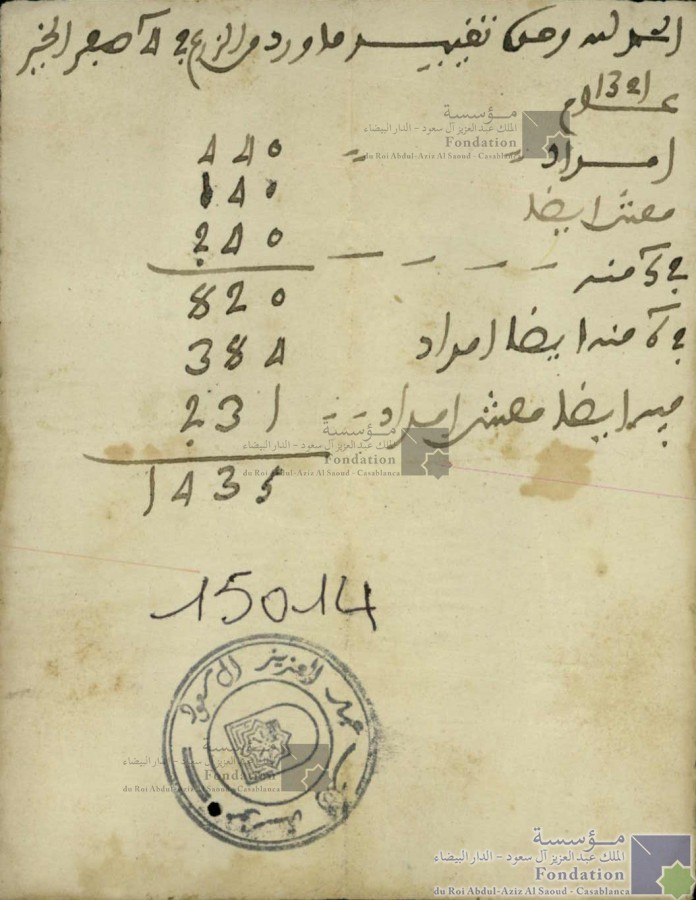 الحمد لله وحده تقييد ما ورد من الزرع في 4 صفر الخير
عــام 1321
امــداد -- 440
ايضا 140
240
في 5 منه - - - - 820
في 6 منه ايضا امداد 384
ايضا امداد -- 231
1435
15014
عبد العزيز آل سعود
مؤسسة
مؤسسة
الملك عبد العزيز آل سعود - الدار البيضاء
Fondation
du Roi Abdul-Aziz Al Saoud - Casablanca
مؤسسة
الملك عبد العزيز آل سعود - الدار البيضاء
Fondation
du Roi Abdul-Aziz Al Saoud - Casablanca
مؤسسة
الملك عبد العزيز آل سعود - الدار البيضاء
Fondation
du Roi Abdul-Aziz Al Saoud - Casablanca
مؤسسة
الملك عبد العزيز آل سعود - الدار البيضاء
Fondation
du Roi Abdul-Aziz Al Saoud - Casablanca